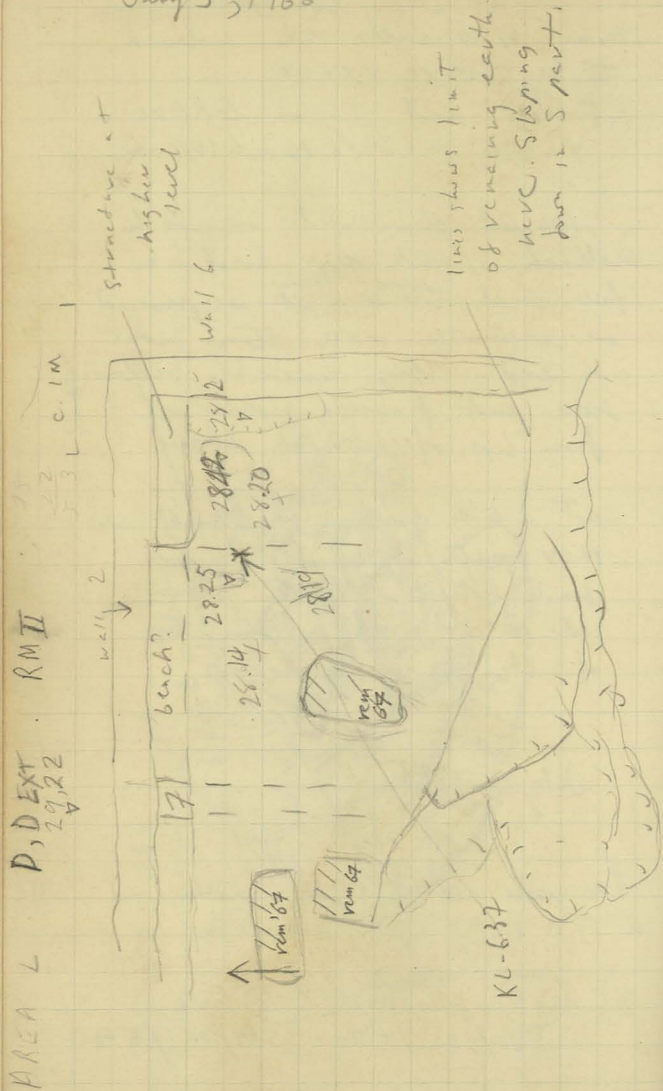 AREA L D, D EXT RM II
29,22
c. 1M
wall 2
structure at
higher
level
Wall 6
bench?
28.25
28.20
28.14
2819
rem
67
rem 67
rem '67
KL-637
lines shows limit
of remaining earth
here. Sloping
down in S part.